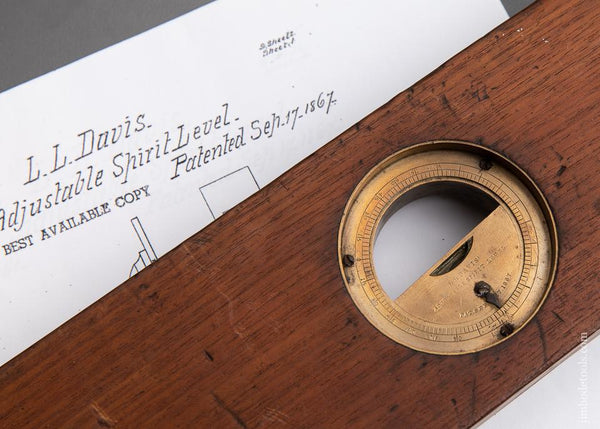 2 Sheets.
Sheet 1
L. L. Davis.
Adjustable Spirit Level.
Patented Sep. 17. 1867.
BEST AVAILABLE COPY
jimbodetools.com